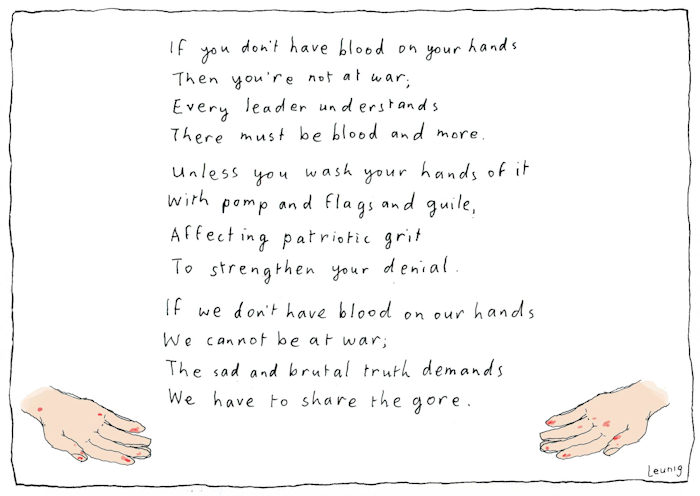 If you don't have blood on your hands
Then you're not at war;
Every leader understands
There must be blood and more.
Unless you wash your hands of it
With pomp and flags and guile,
Affecting patriotic grit
To strengthen your denial.
If we don't have blood on our hands
We cannot be at war;
The sad and brutal truth demands
We have to share the gore.
Leunig